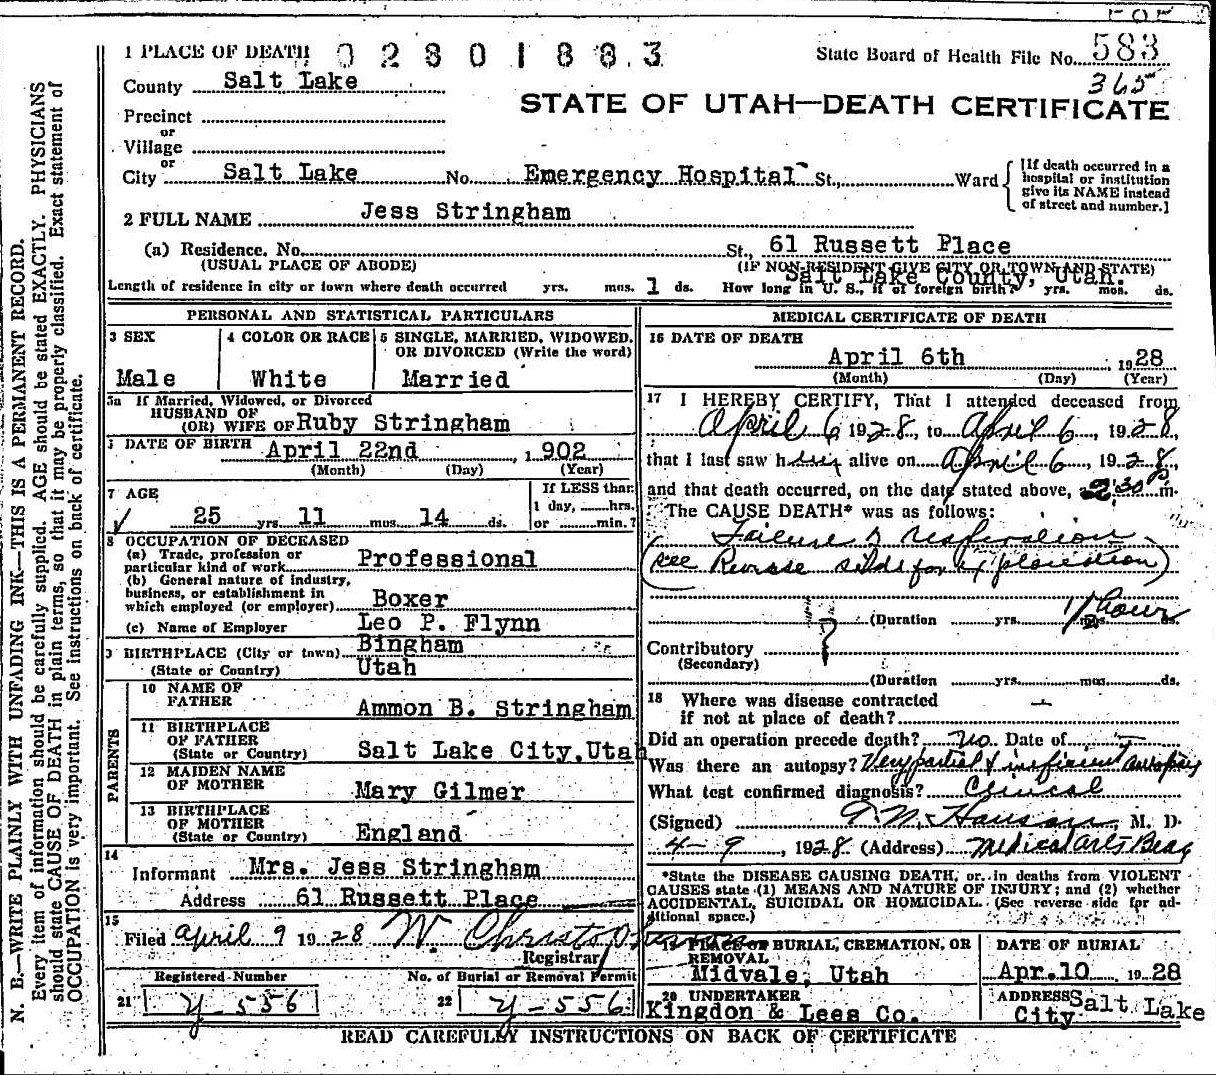 1 PLACE OF DEATH 02801883
State Board of Health File No. 583
365
County Salt Lake
STATE OF UTAH—DEATH CERTIFICATE
Precinct
or
Village
or
City Salt Lake No. Emergency Hospital St., Ward
[If death occurred in a hospital or institution give its NAME instead of street and number.]
2 FULL NAME Jess Stringham
(a) Residence. No. St., 61 Russett Place
(USUAL PLACE OF ABODE) (IF NON-RESIDENT GIVE CITY OR TOWN AND STATE)
Salt Lake County, Utah.
Length of residence in city or town where death occurred yrs. mos. 1 ds. How long in U. S., if of foreign birth? yrs. mos. ds.
PERSONAL AND STATISTICAL PARTICULARS
3 SEX
Male
4 COLOR OR RACE
White
5 SINGLE, MARRIED, WIDOWED, OR DIVORCED (Write the word)
Married
5a If Married, Widowed, or Divorced
HUSBAND OF
(OR) WIFE OF Ruby Stringham
DATE OF BIRTH April 22nd, 1902
(Month) (Day) (Year)
7 AGE
25 yrs. 11 mos. 14 ds.
If LESS than
1 day, hrs.
or min.?
8 OCCUPATION OF DECEASED
(a) Trade, profession or
particular kind of work Professional
(b) General nature of industry,
business, or establishment in
which employed (or employer) Boxer
(c) Name of Employer Leo P. Flynn
9 BIRTHPLACE (City or town) Bingham
(State or Country) Utah
PARENTS
10 NAME OF
FATHER Ammon B. Stringham
11 BIRTHPLACE
OF FATHER
(State or Country) Salt Lake City, Utah
12 MAIDEN NAME
OF MOTHER Mary Gilmer
13 BIRTHPLACE
OF MOTHER
(State or Country) England
14
Informant Mrs. Jess Stringham
Address 61 Russett Place
15
Filed April 9 1928 W. Christo
Registrar
Registered Number No. of Burial or Removal Permit
21 y-556 22 y-556
MEDICAL CERTIFICATE OF DEATH
16 DATE OF DEATH
April 6th, 1928
(Month) (Day) (Year)
17 I HEREBY CERTIFY, That I attended deceased from
April 6 1928, to April 6, 1928,
that I last saw him alive on April 6, 1928,
and that death occurred, on the date stated above, 2:30 P m.
The CAUSE DEATH* was as follows:
Failure of respiration
(see Reverse side for explanation)
(Duration yrs. mos. ds. hour
Contributory
(Secondary)
(Duration yrs. mos. ds.
18 Where was disease contracted
if not at place of death?
Did an operation precede death? No Date of
Was there an autopsy? Very partial & inefficient autopsy
What test confirmed diagnosis? Clinical
(Signed) Hanson, M. D.
4-9, 1928 (Address) Medical Arts Bldg
*State the DISEASE CAUSING DEATH, or in deaths from VIOLENT
CAUSES state (1) MEANS AND NATURE OF INJURY; and (2) whether
ACCIDENTAL, SUICIDAL OR HOMICIDAL. (See reverse side for additional space.)
19 PLACE OF BURIAL, CREMATION, OR
REMOVAL
Midvale, Utah
DATE OF BURIAL
Apr. 10 1928
20 UNDERTAKER
Kingdon & Lees Co.
ADDRESS Salt Lake
City
READ CAREFULLY INSTRUCTIONS ON BACK OF CERTIFICATE
N. B.—WRITE PLAINLY WITH UNFADING INK—THIS IS A PERMANENT RECORD.
Every item of information should be carefully supplied. AGE should be stated EXACTLY. PHYSICIANS
should state CAUSE OF DEATH in plain terms, so that it may be properly classified. Exact statement of
OCCUPATION is very important. See instructions on back of certificate.